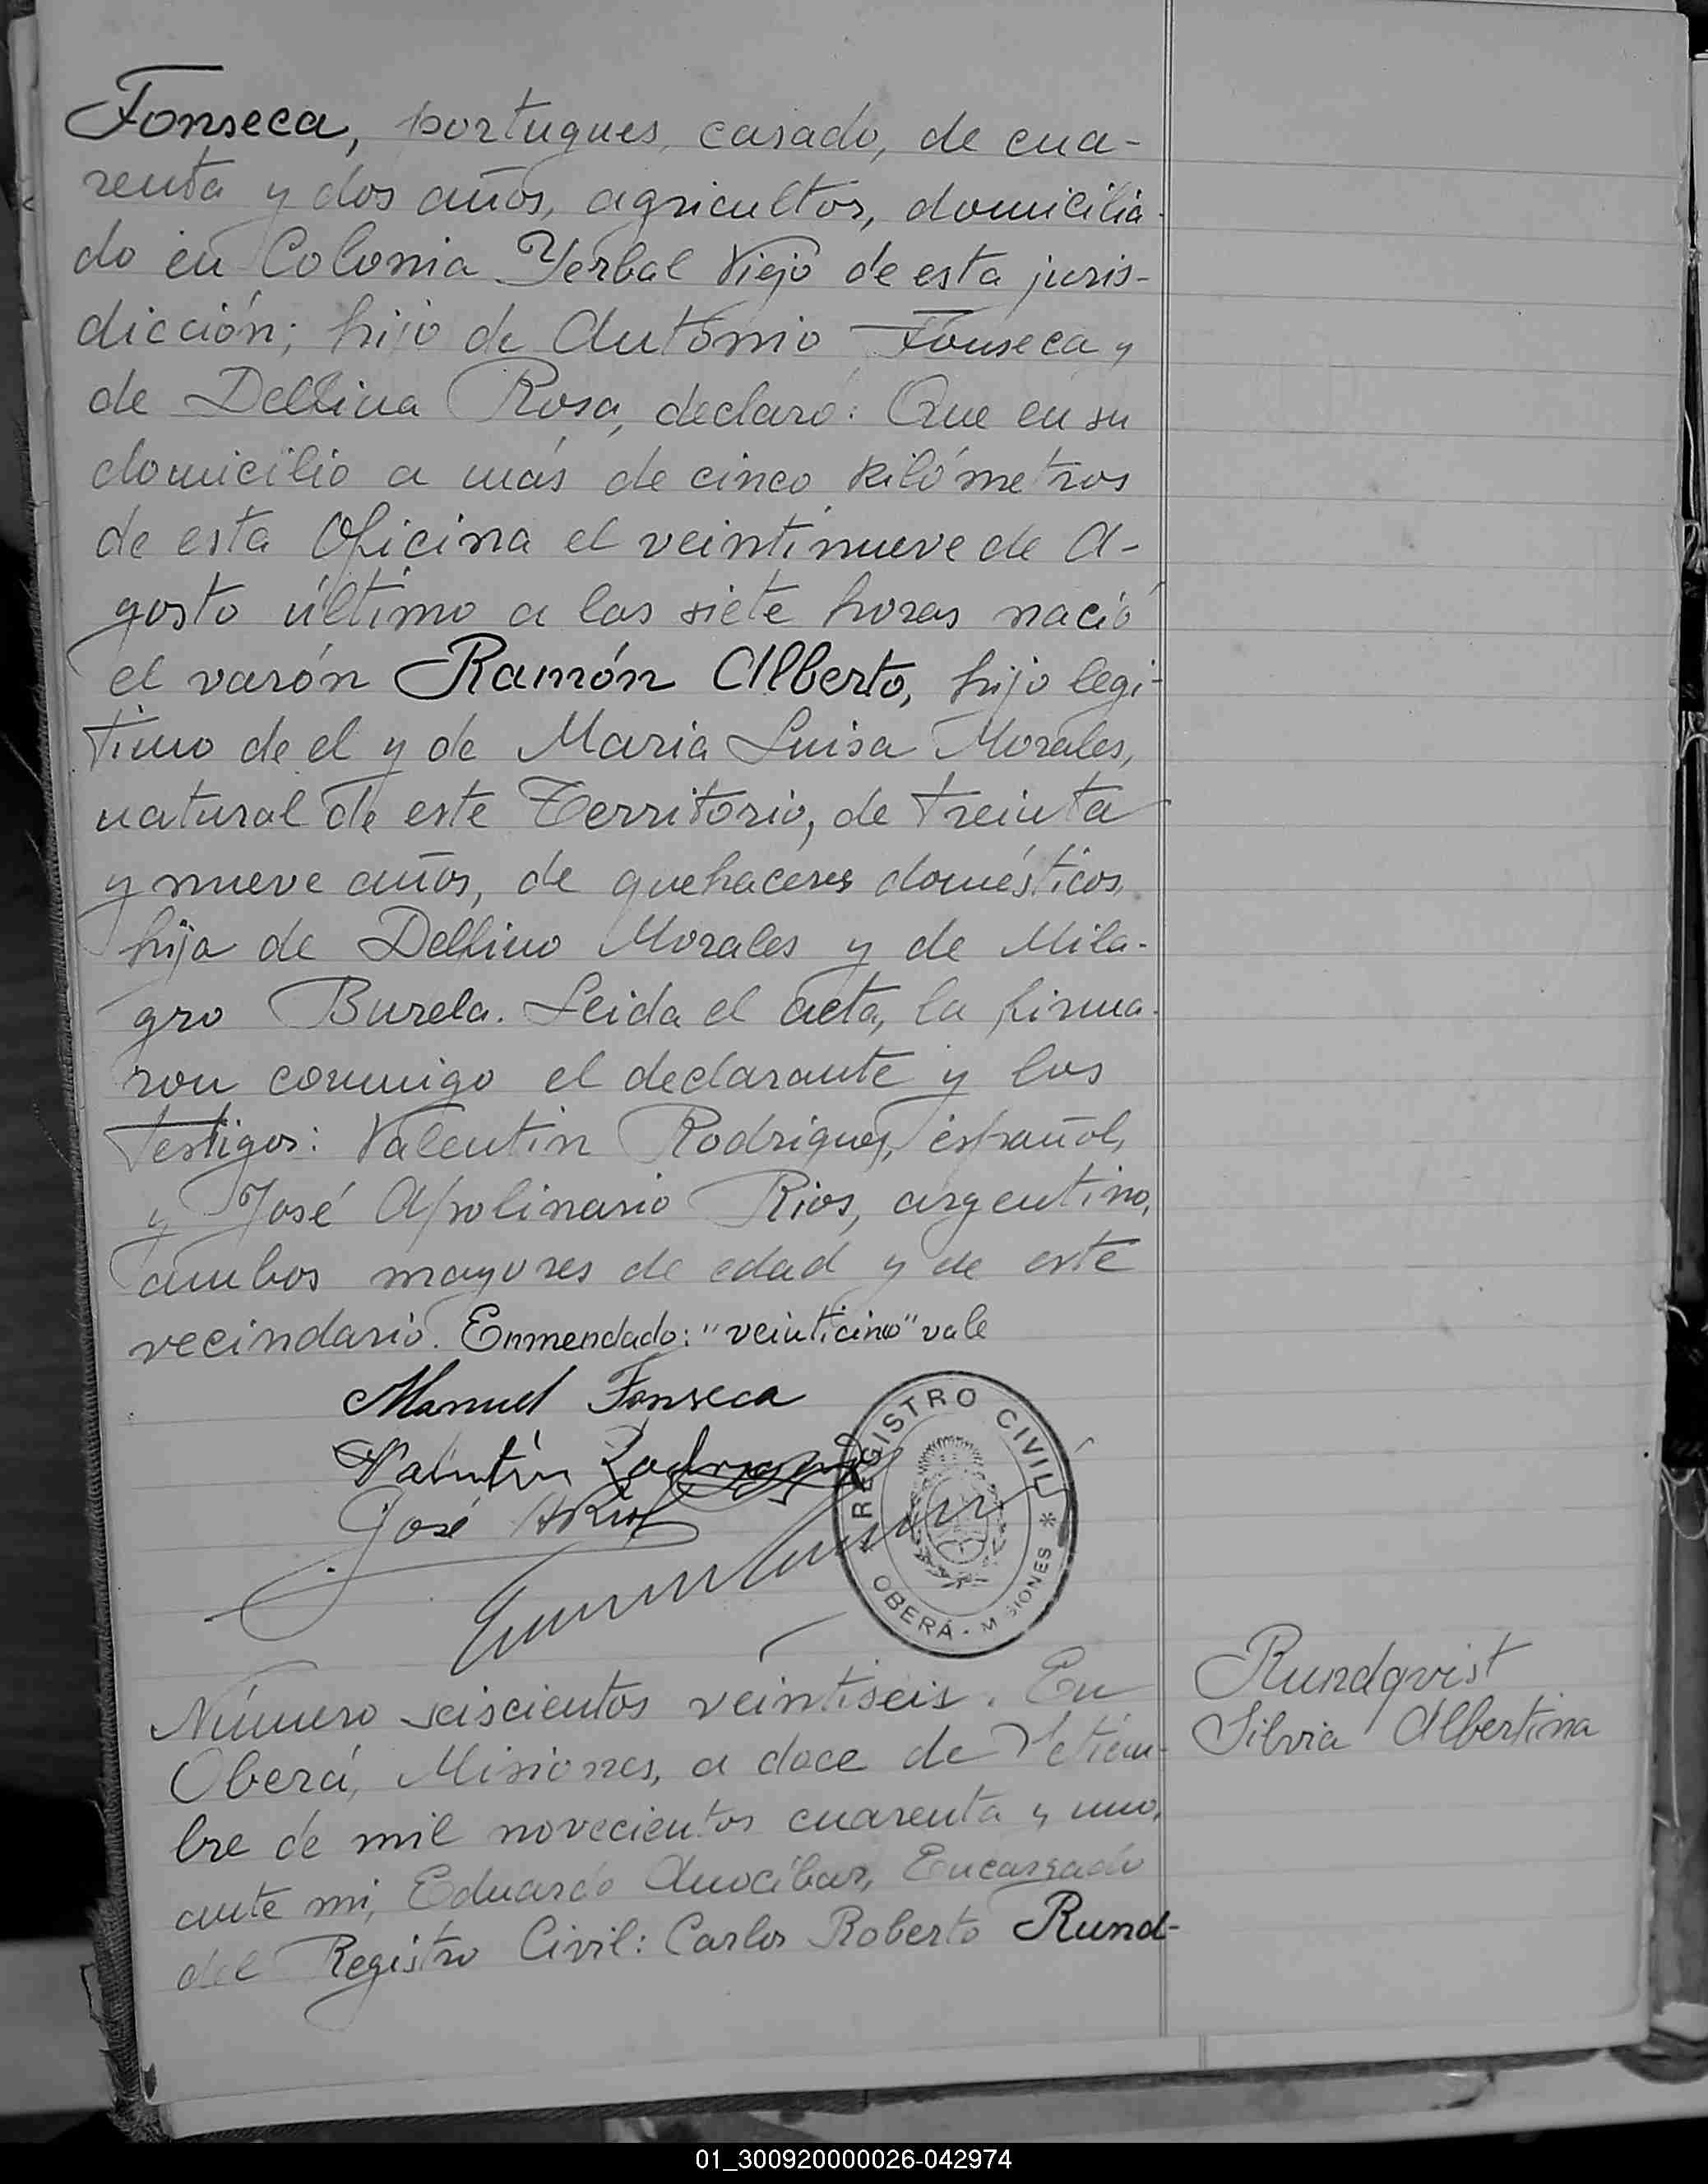 Fonseca, portugues, casado, de cua-
renta y dos años, agricultor, domicilia-
do en Colonia Yerbal Viejo de esta juris-
dicción; hijo de Antonio Fonseca y
de Delfina Rosa, declaró: Que en su
domicilio a más de cinco kilómetros
de esta Oficina el veintinueve de A-
gosto último a las siete horas nació
el varón Ramón Alberto, hijo legi-
timo de el y de Maria Luisa Morales,
natural de este Territorio, de treinta
y nueve años, de quehaceres domésticos,
hija de Delfino Morales y de Mila-
gro Burela. Leida el acta, la firma-
ron conmigo el declarante y los
testigos: Valentin Rodriguez, español,
y José Apolinario Rios, argentino,
ambos mayores de edad y de este
vecindario. Enmendado: "veinticinco" vale
Manuel Fonseca
Valentín Rodriguez
José A Rios
REGISTRO CIVIL
* OBERÁ - MISIONES *
Número seiscientos veintiseis. En
Oberá, Misiones, a doce de Setiem-
bre de mil novecientos cuarenta y uno,
ante mi, Eduardo Anocíbar, Encargado
del Registro Civil: Carlos Roberto Rund-
Rundqvist
Silvia Albertina
01_300920000026-042974